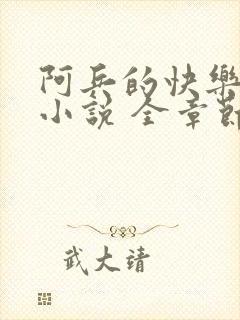 阿兵的快樂
小說 全章節
武大靖